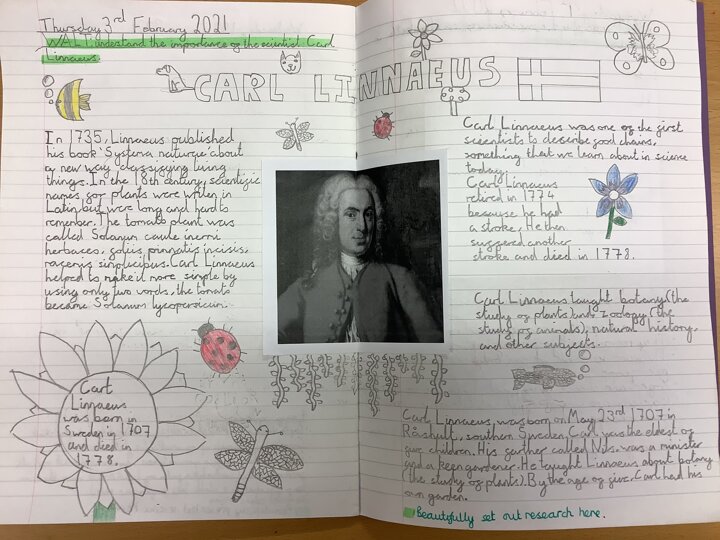 Thursday 3rd February 2021
WALT understand the importance of the scientist Carl
Linnaeus.
CARL LINNAEUS
In 1735, Linnaeus published
his book Systema naturae about
a new way classifying living
things. In the 18th century, scientific
names for plants were writen in
Latin but were long and hard to
remember. The tomato plant was
called Solanum caule inermi
herbaceo, foliis pinnatis incisis,
racemis simplicibus. Carl Linnaeus
helped to make it more simple by
using only two words, the tomato
became Solanum lycopersicum.
Carl
Linnaeus
was born in
Sweden in 1707
and died in
1778.
Carl Linnaeus was one of the first
scientists to describe food chains,
something that we learn about in science
today.
Carl Linnaeus
retired in 1774
because he had
a stroke. He then
suffered another
stroke and died in 1778.
Carl Linnaeus taught botany (the
study of plants) and zoology (the
study of animals), natural history,
and other subjects.
Carl Linnaeus was born on May 23rd 1707 in
Råshult, southern Sweden. Carl was the eldest of
five children. His father called Nils was a minister
and a keen gardener. He taught Linnaeus about botany
(the study of plants). By the age of five, Carl had his
own garden.
Beautifully set out research here.